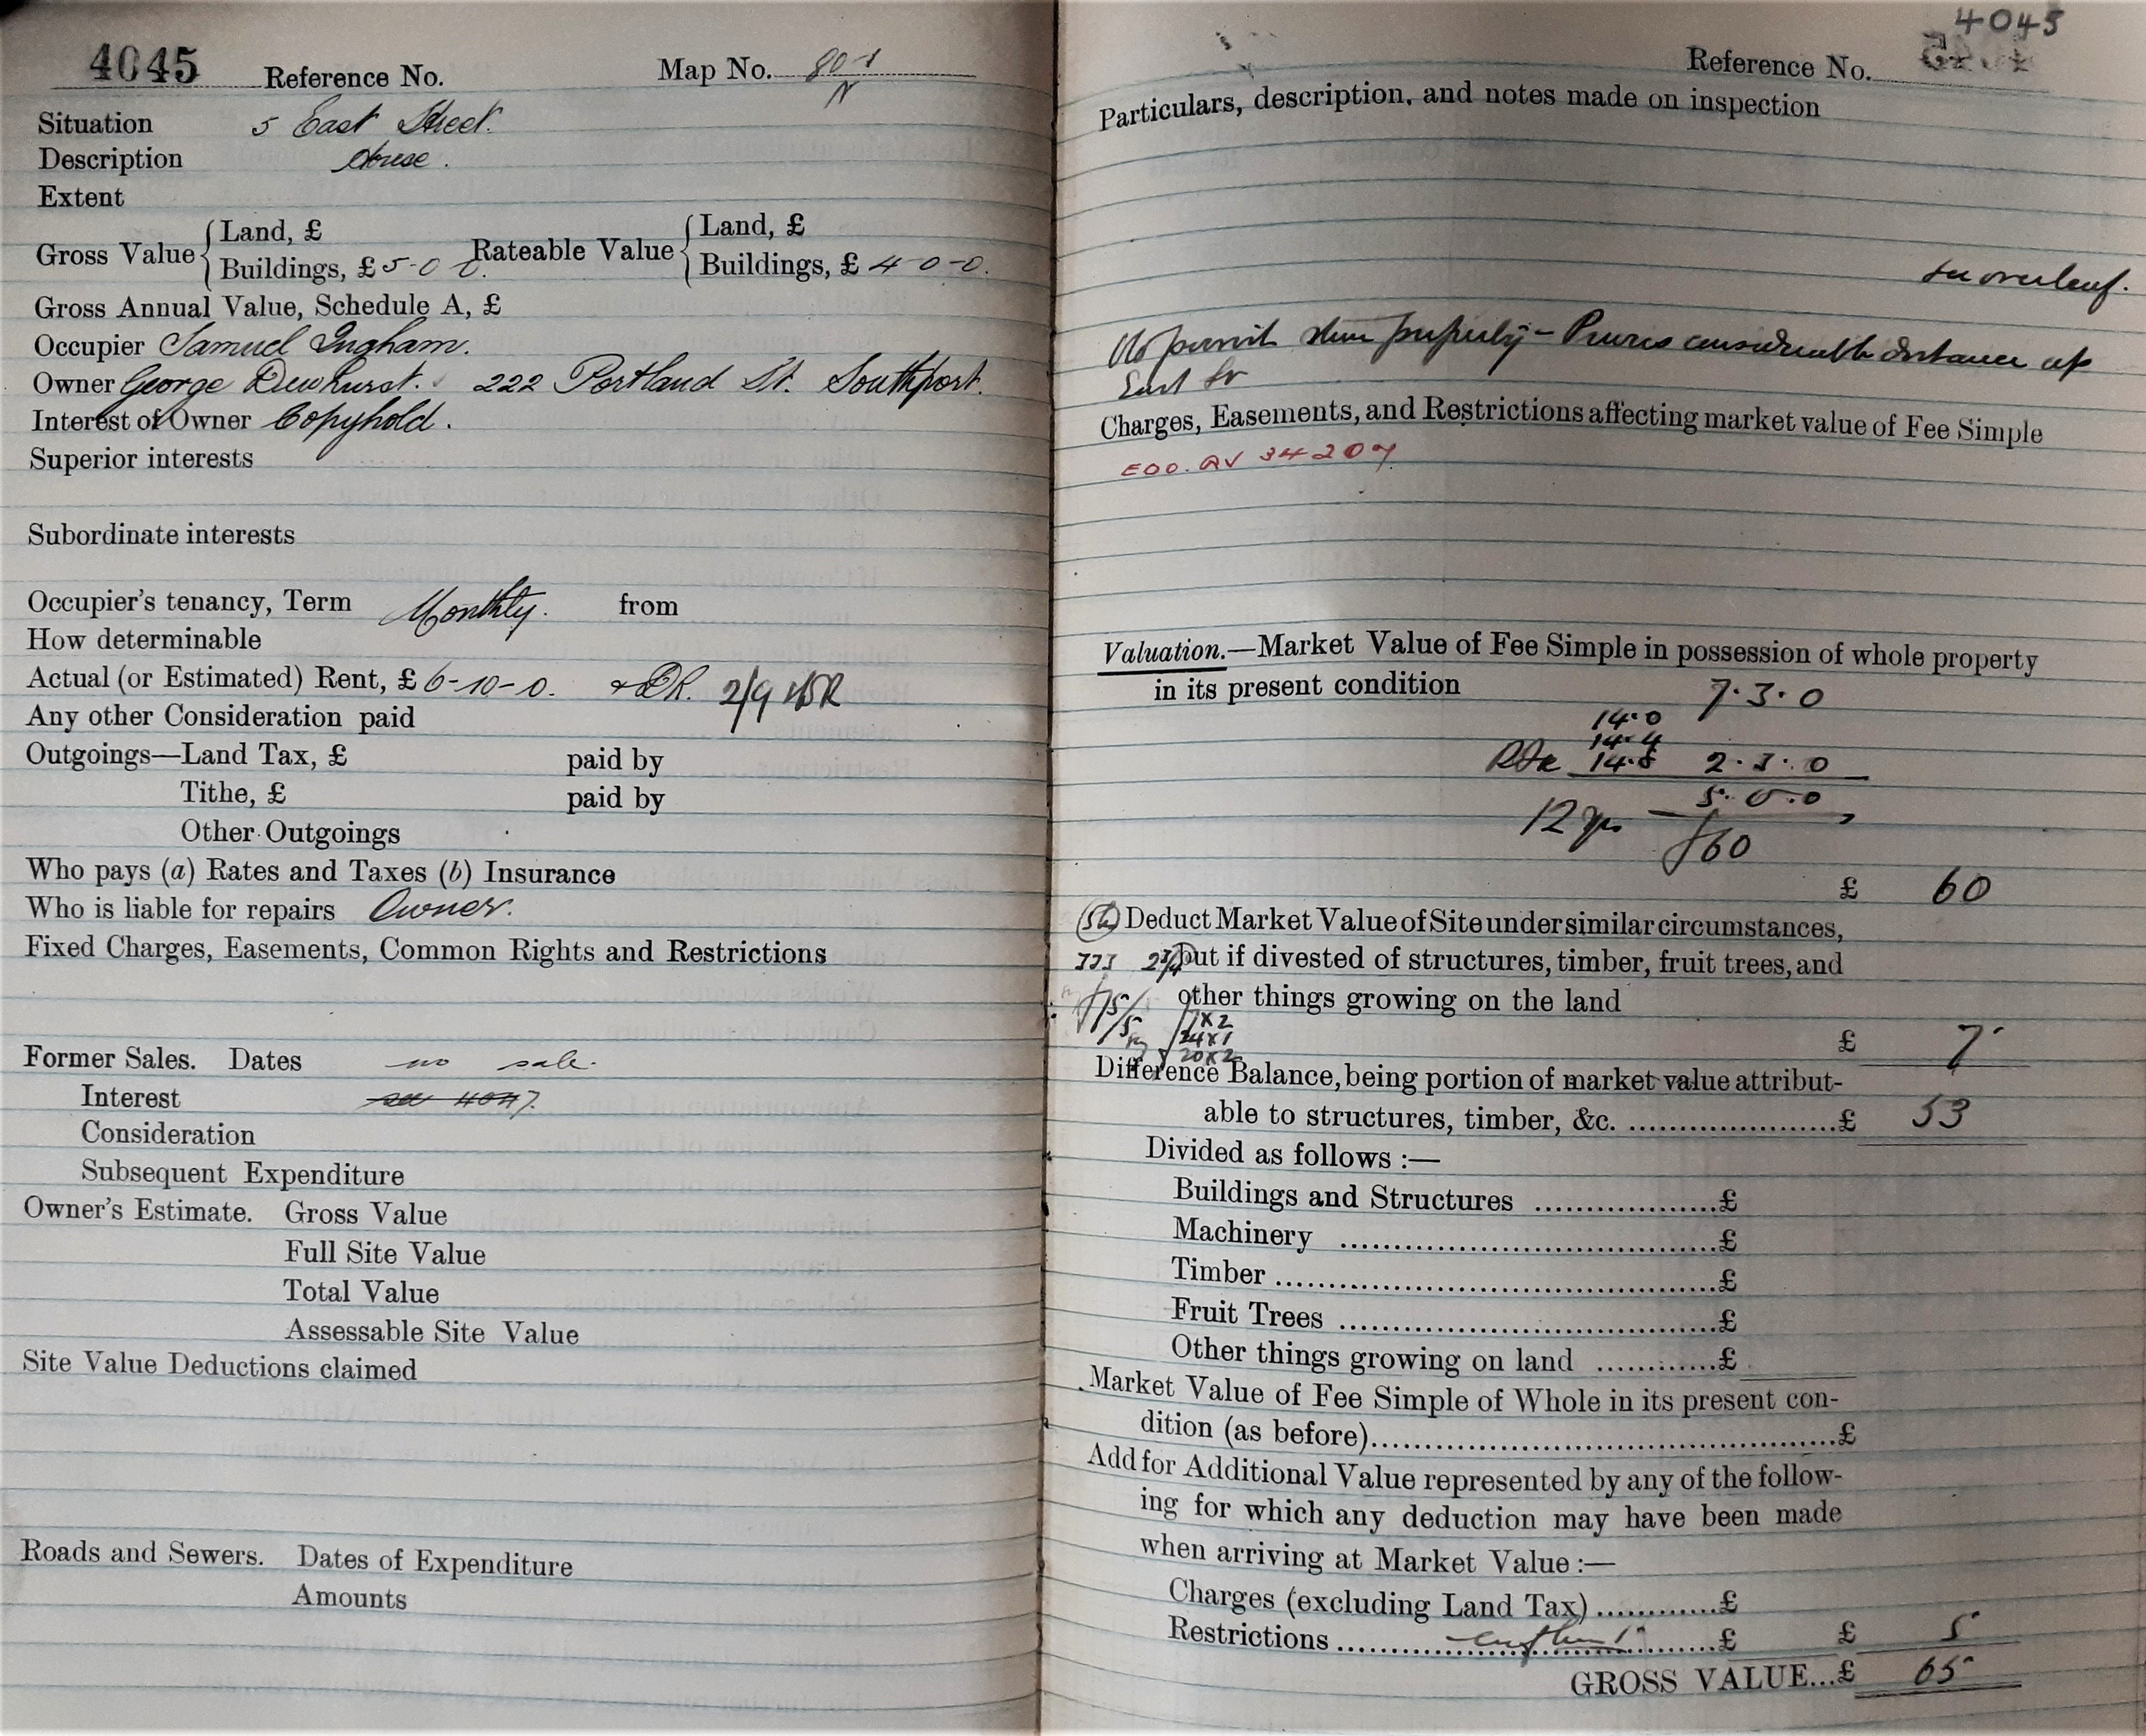 4045 Reference No. Map No. 80-1
N
Situation 5 East Street.
Description House.
Extent
Gross Value { Land, £
Buildings, £ 5-0-0. Rateable Value { Land, £
Buildings, £ 4-0-0.
Gross Annual Value, Schedule A, £
Occupier Samuel Ingham.
Owner George Dewhurst. 222 Portland St. Southport.
Interest of Owner Copyhold.
Superior interests
Subordinate interests
Occupier's tenancy, Term Monthly. from
How determinable
Actual (or Estimated) Rent, £ 6-10-0. 2/9
Any other Consideration paid
Outgoings—Land Tax, £ paid by
Tithe, £ paid by
Other Outgoings
Who pays (a) Rates and Taxes (b) Insurance
Who is liable for repairs Owner.
Fixed Charges, Easements, Common Rights and Restrictions
Former Sales. Dates no sale.
Interest see 4047.
Consideration
Subsequent Expenditure
Owner's Estimate. Gross Value
Full Site Value
Total Value
Assessable Site Value
Site Value Deductions claimed
Roads and Sewers. Dates of Expenditure
Amounts
4045
Reference No.
Particulars, description, and notes made on inspection
see overleaf.
considerable distance up
East St
Charges, Easements, and Restrictions affecting market value of Fee Simple
34207
Valuation.—Market Value of Fee Simple in possession of whole property
in its present condition 7.3.0
14.0
14.4
2.3.0
5.0.0
12 yrs
£60
£ 60
Deduct Market Value of Site under similar circumstances,
but if divested of structures, timber, fruit trees, and
other things growing on the land
24x1
20x2
£ 7
Difference Balance, being portion of market value attribut-
able to structures, timber, &c. ....................£ 53
Divided as follows :—
Buildings and Structures ..................£
Machinery ..................£
Timber ..................£
Fruit Trees ..................£
Other things growing on land ............£
Market Value of Fee Simple of Whole in its present con-
dition (as before)..................£
Add for Additional Value represented by any of the follow-
ing for which any deduction may have been made
when arriving at Market Value :—
Charges (excluding Land Tax) ............£
Restrictions ..................£ £ 5
GROSS VALUE...£ 65